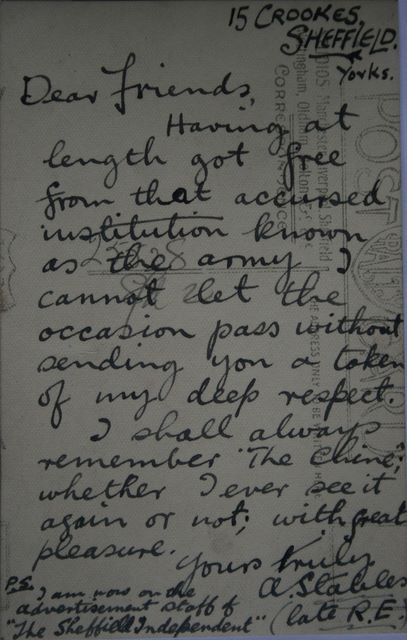 15 CROOKES,
SHEFFIELD.
Yorks.
Dear friends,
Having at
length got free
from that accursed
institution known
as the army I
cannot let the
occasion pass without
sending you a token
of my deep respect.
I shall always
remember 'The Chine',
whether I ever see it
again or not; with great
pleasure.
Yours truly
A. Stables
(late R.E.)
P.S. I am now on the
advertisement staff of
"The Sheffield Independent"
POST CARD